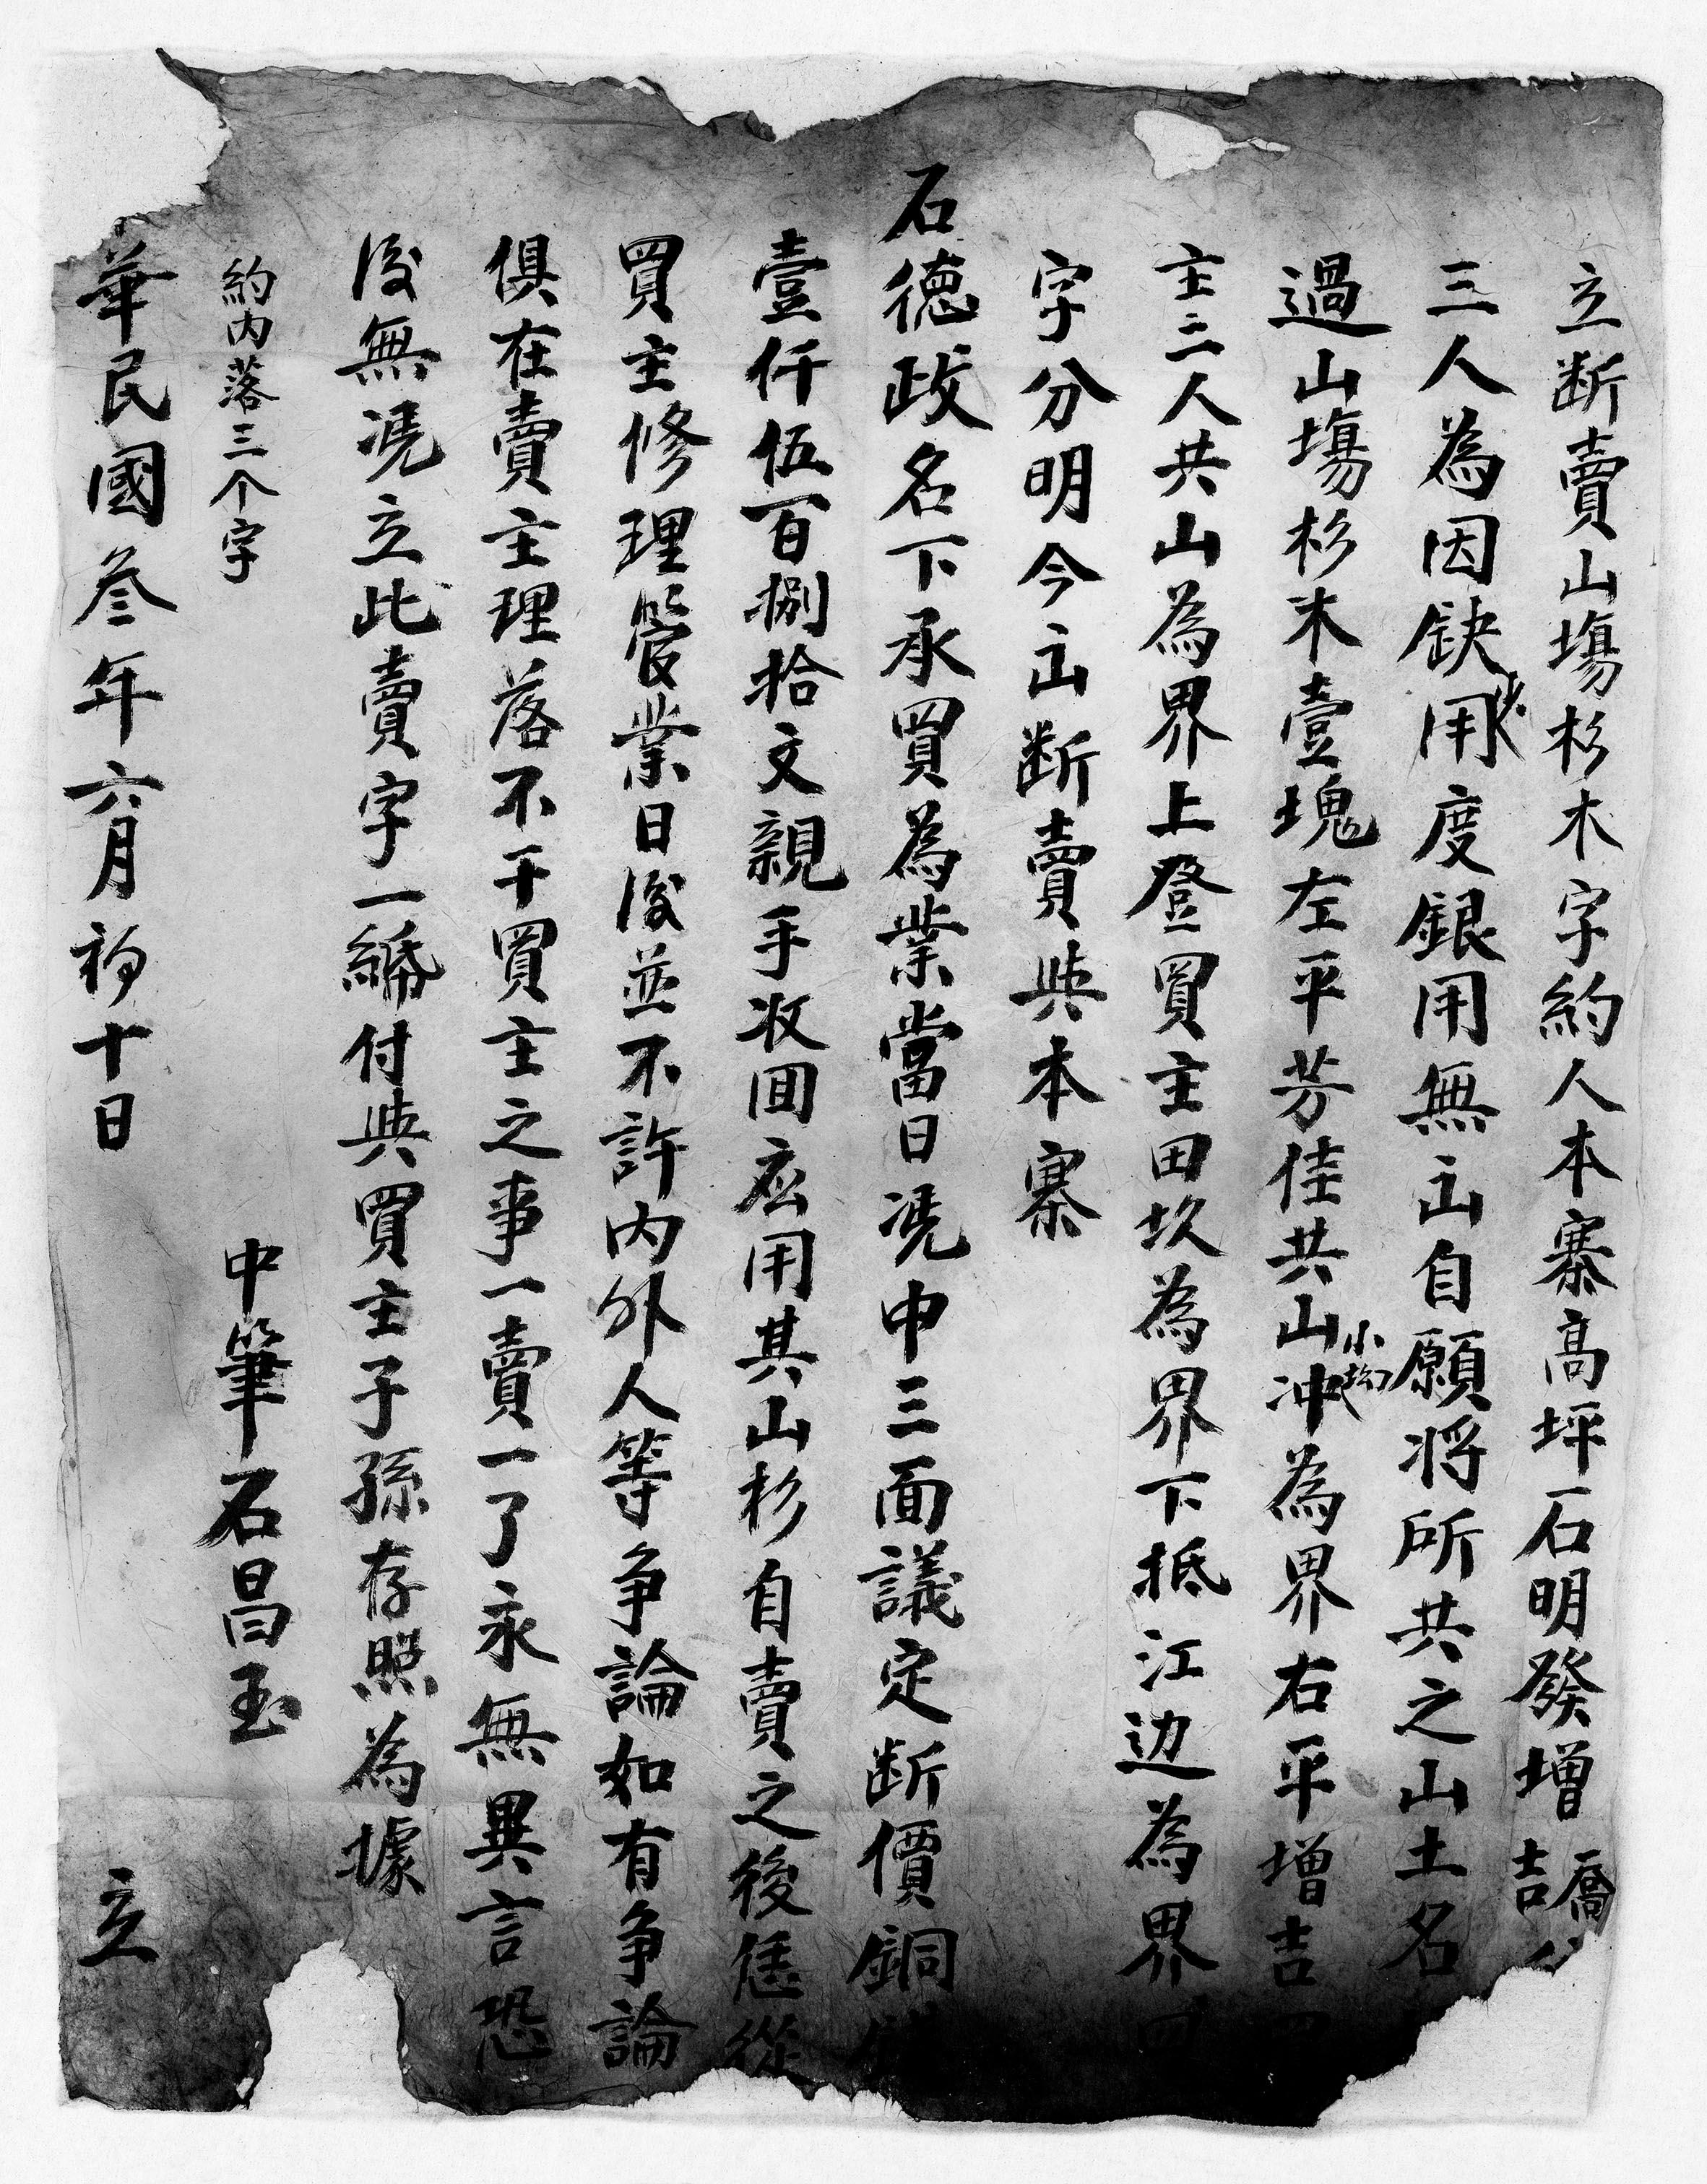 立断賣山塲杉木字約人本寨髙坪石明發增喬吉
三人為因缺少用度銀用無出自願将所共之山土名
過山塲杉木壹塊左平芳佳共山冲小坳為界右平增吉四
主二人共山為界上登買主田坎為界下抵江边為界四
字分明今出断賣與本寨
石德政名下承買為業當日凴中三面議定断價銅錢
壹仟伍百捌拾文親手收囬應用其山杉自賣之後恁從
買主修理管業日後並不許内外人等争論如有争論
俱在賣主理落不干買主之事一賣一了永無異言恐
後無凴立此賣字一紙付與買主子孫存照為據
約内落三个字
中筆石昌玉
華民國叁年六月初十日 立